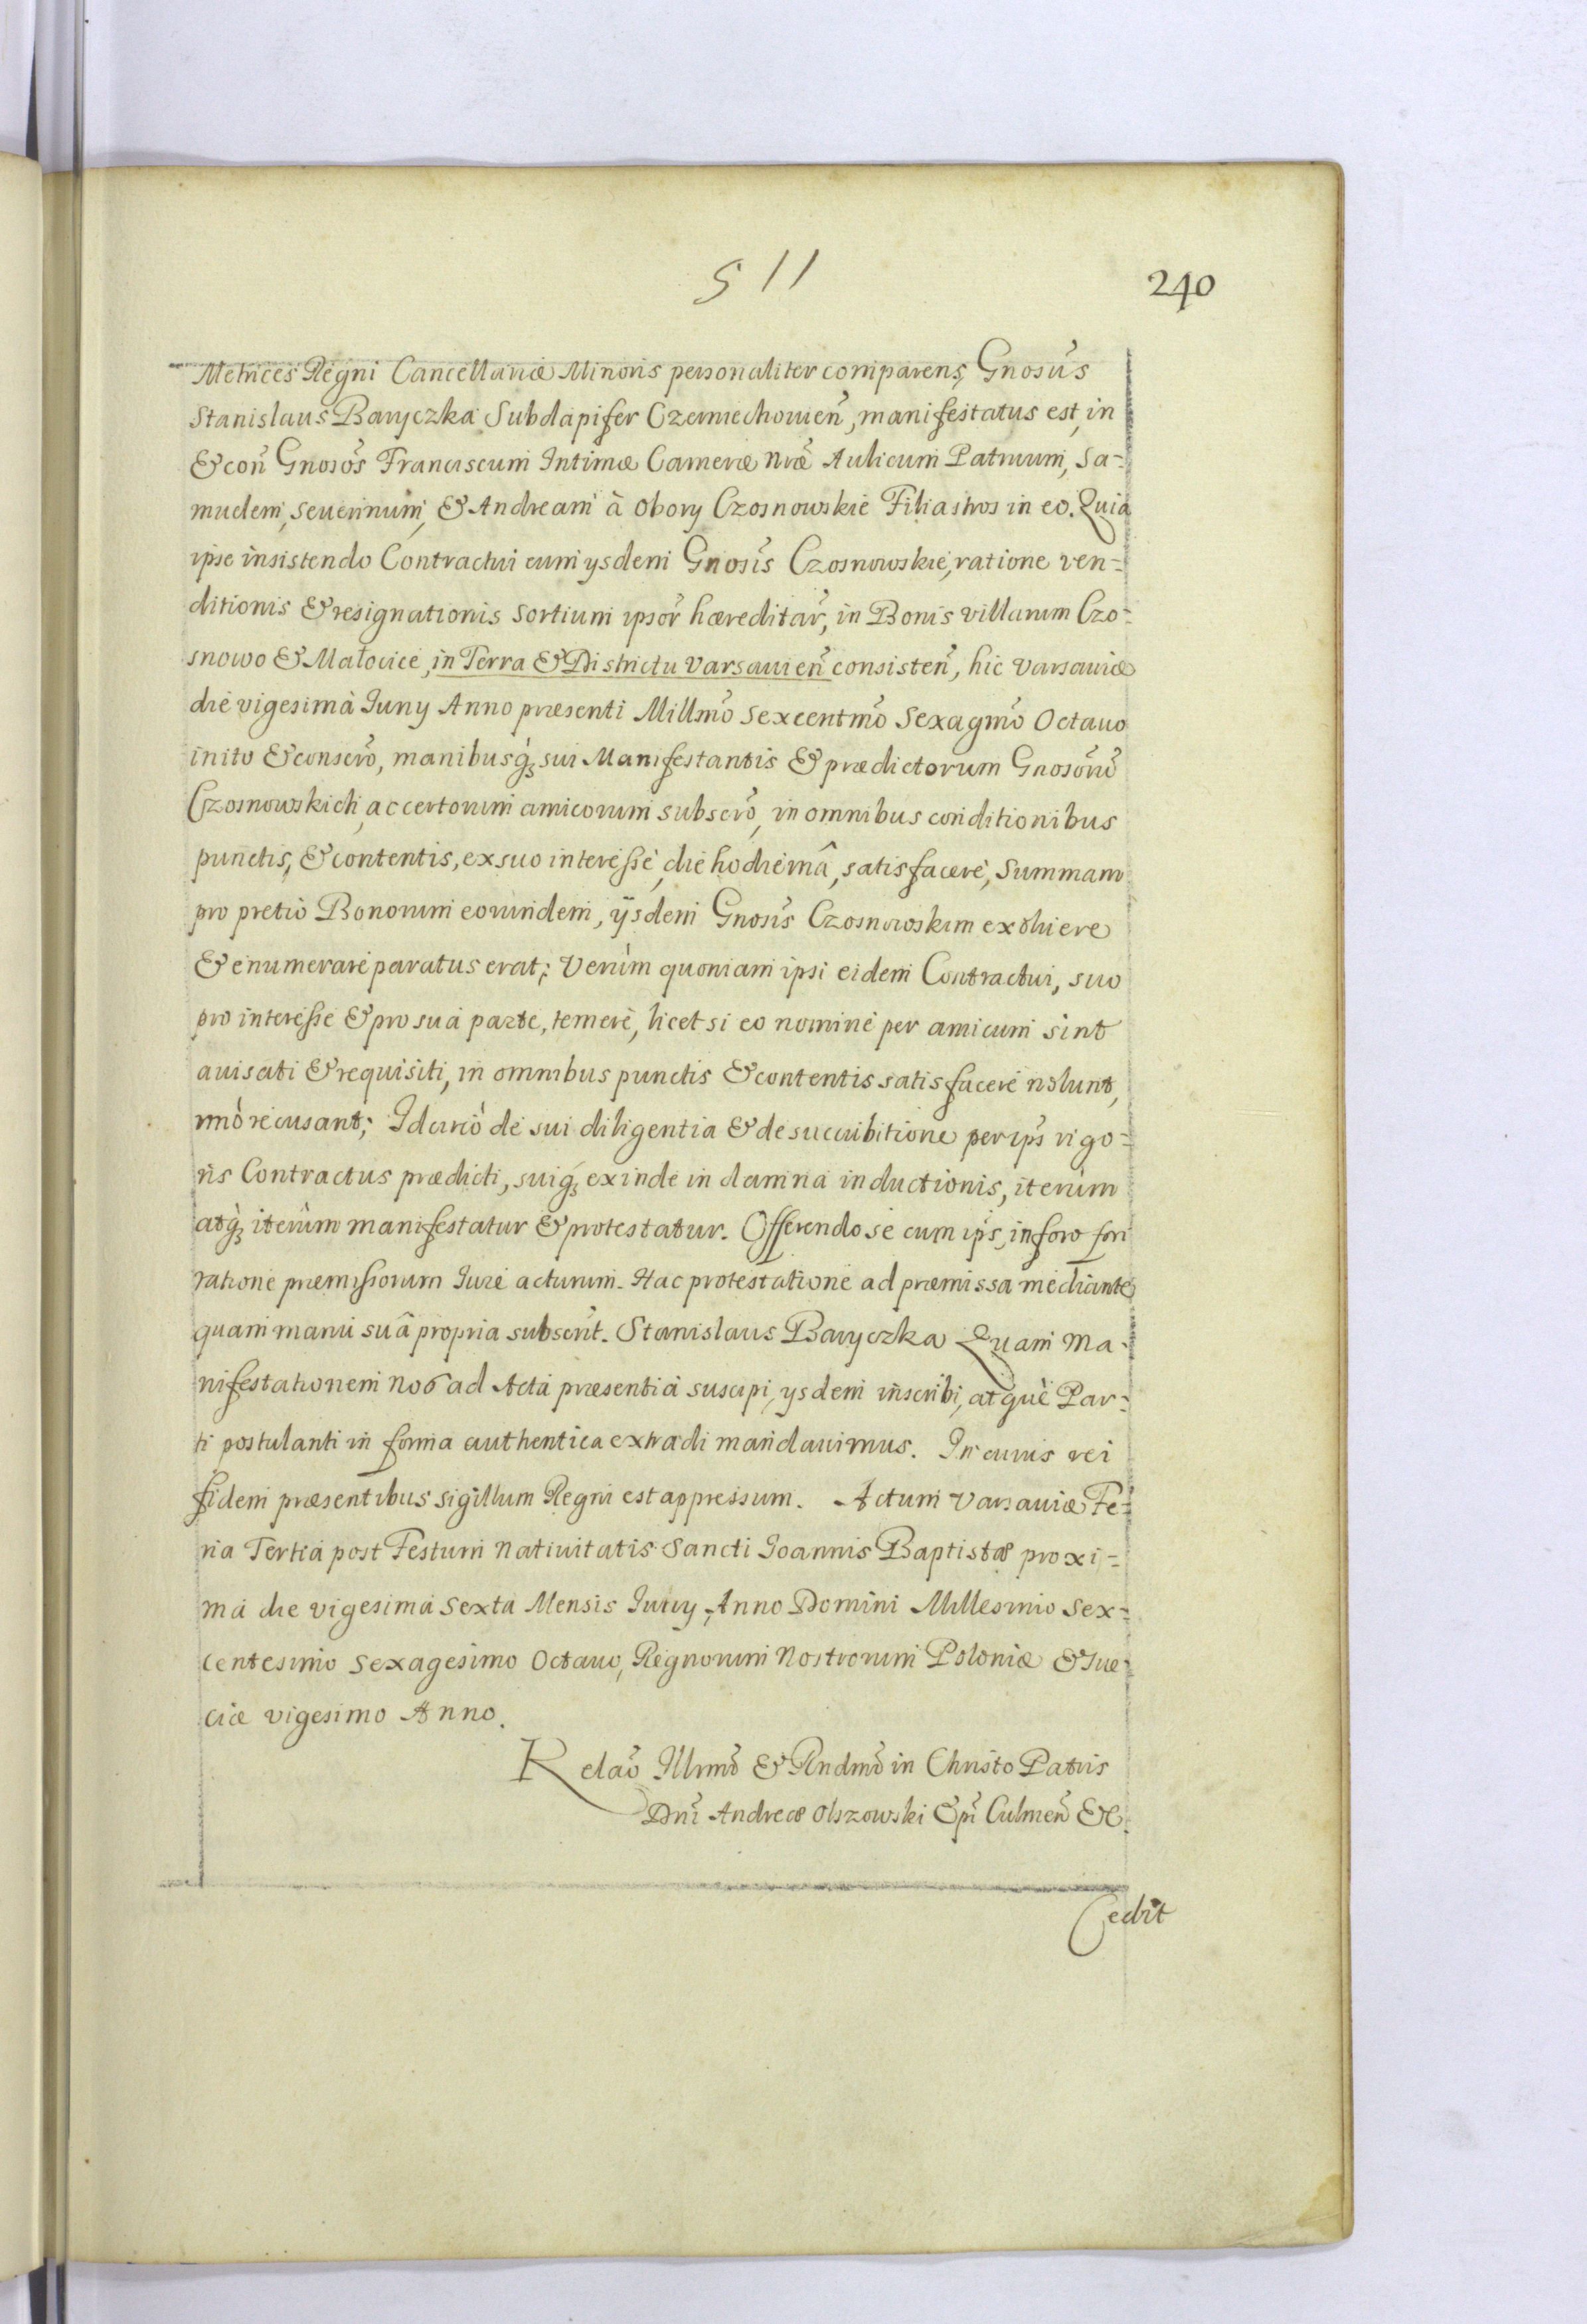 511
240
Metrices Regni Cancellariæ Minoris personaliter comparens, Gnosũs
Stanislaus Baryczka Subdapifer Czerniechouieñ, manifestatus est, in
& coñ Gnosõs Franciscum Intimæ Cameræ nræ Aulicum Patruum, Sa-
muelem, Seuerinum, & Andream à Obory Czosnowskie Filiastros in eo. Quia
ipse insistendo Contractui cum ysdem Gnosĩs Czosnowskie, ratione ven-
ditionis & resignationis sortium ipsoȓ hæreditaȓ, in Bonis villarum Czo-
snowo & Małocice, in Terra & Districtu Varsauieñ consisteñ, hic Varsauiæ
die vigesimà Iuny Anno præsenti Millmõ Sexcentmõ Sexagmõ Octauo
inito & conscrõ, manibusq́ʒ sui Manifestantis & prædictorum Gnosõrũ
Czosnowskich, ac certorum amicorum subscrõ, in omnibus conditionibus
punctis, & contentis, ex suo interesse, die hodiernâ, satisfacere, Summam
pro pretio Bonorum eorundem, ÿsdem Gnosĩs Czosnowskim exoluere
& enumerare paratus erat; Verùm quoniam ipsi eidem Contractui, suo
pro interesse & pro sua parte, temerè, licet si eo nomine per amicum sint
auisati & requisiti, in omnibus punctis & contentis satisfacere nolunt,
imò recusant; Idcircò de sui diligentia & de succubitione per ip̃s rigo-
ris Contractus prædicti, suiq́ʒ exinde in damna inductionis, iterùm
atq́ʒ iterùm manifestatur & protestatur. Offerendo se cum ip̃s, in foro fori
ratione præmissorum Iure acturum. Hac protestatione ad præmissa mediante
quam manu suâ propria subscrit. Stanislaus Baryczka Quam Ma-
nifestationem nos ad Acta præsentia suscipi, ysdem inscribi, atque Par-
ti postulanti in forma authentica extradi mandauimus. In cuius rei
fidem præsentibus sigillum Regni est appressum. Actum Varsauiæ Fe-
ria Tertia post Festum Natiuitatis Sancti Ioannis Baptistæ proxi-
ma die vigesima Sexta Mensis Iuny, Anno Domini Millesimo Sex-
centesimo Sexagesimo Octauo, Regnorum Nostrorum Poloniæ & Sue-
ciæ vigesimo Anno.
Relaõ Illrmĩ & Rndmĩ in Christo Patris
Dnĩ Andreæ Olszowski Epĩ Culmeñ &c.
Cedit